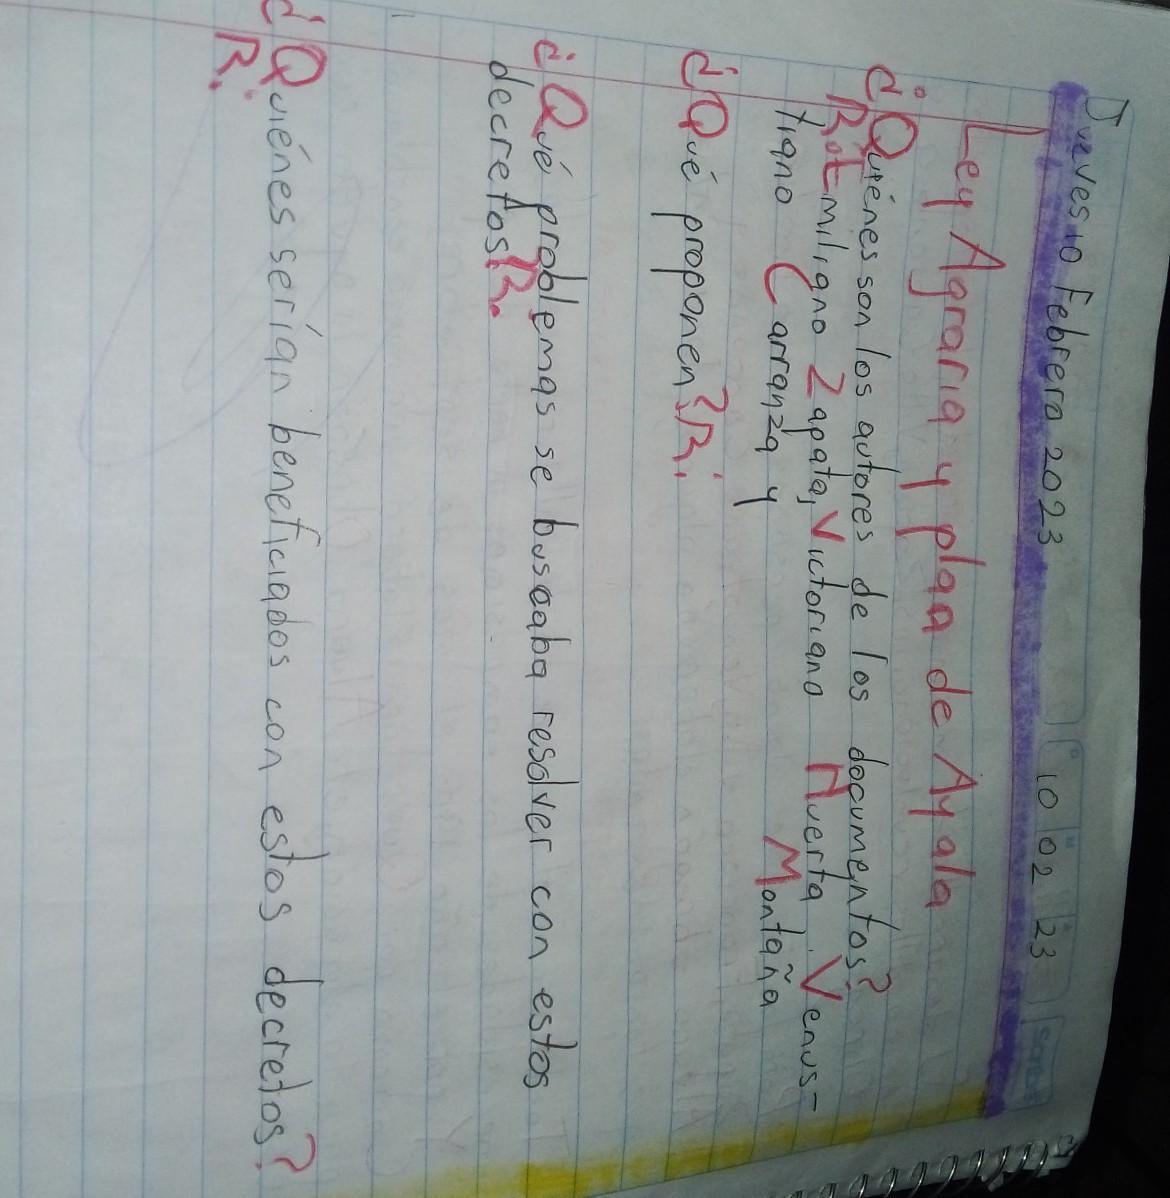 Jueves 10 Febrero 2023
10 02 23
Scribe
Ley Agraria y plan de Ayala
¿Quiénes son los autores de los documentos?
R: Emiliano Zapata, Victoriano Huerta, Venus-
tiano Carranza y Montaña
¿Qué proponen? R:
¿Qué problemas se buscaba resolver con estos
decretos? R:
¿Quiénes serían beneficiados con estos decretos?
R: